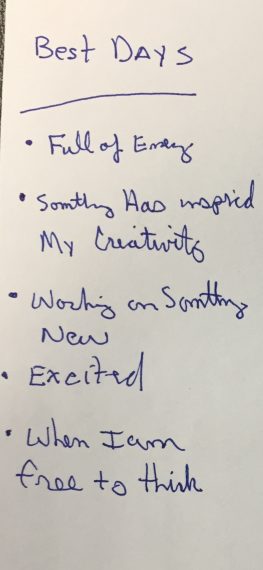 Best Days
• Full of Energy
• Somthing Has inspired
My Creativity
• Working on Somthing
New
• Excited
• When I am
free to think